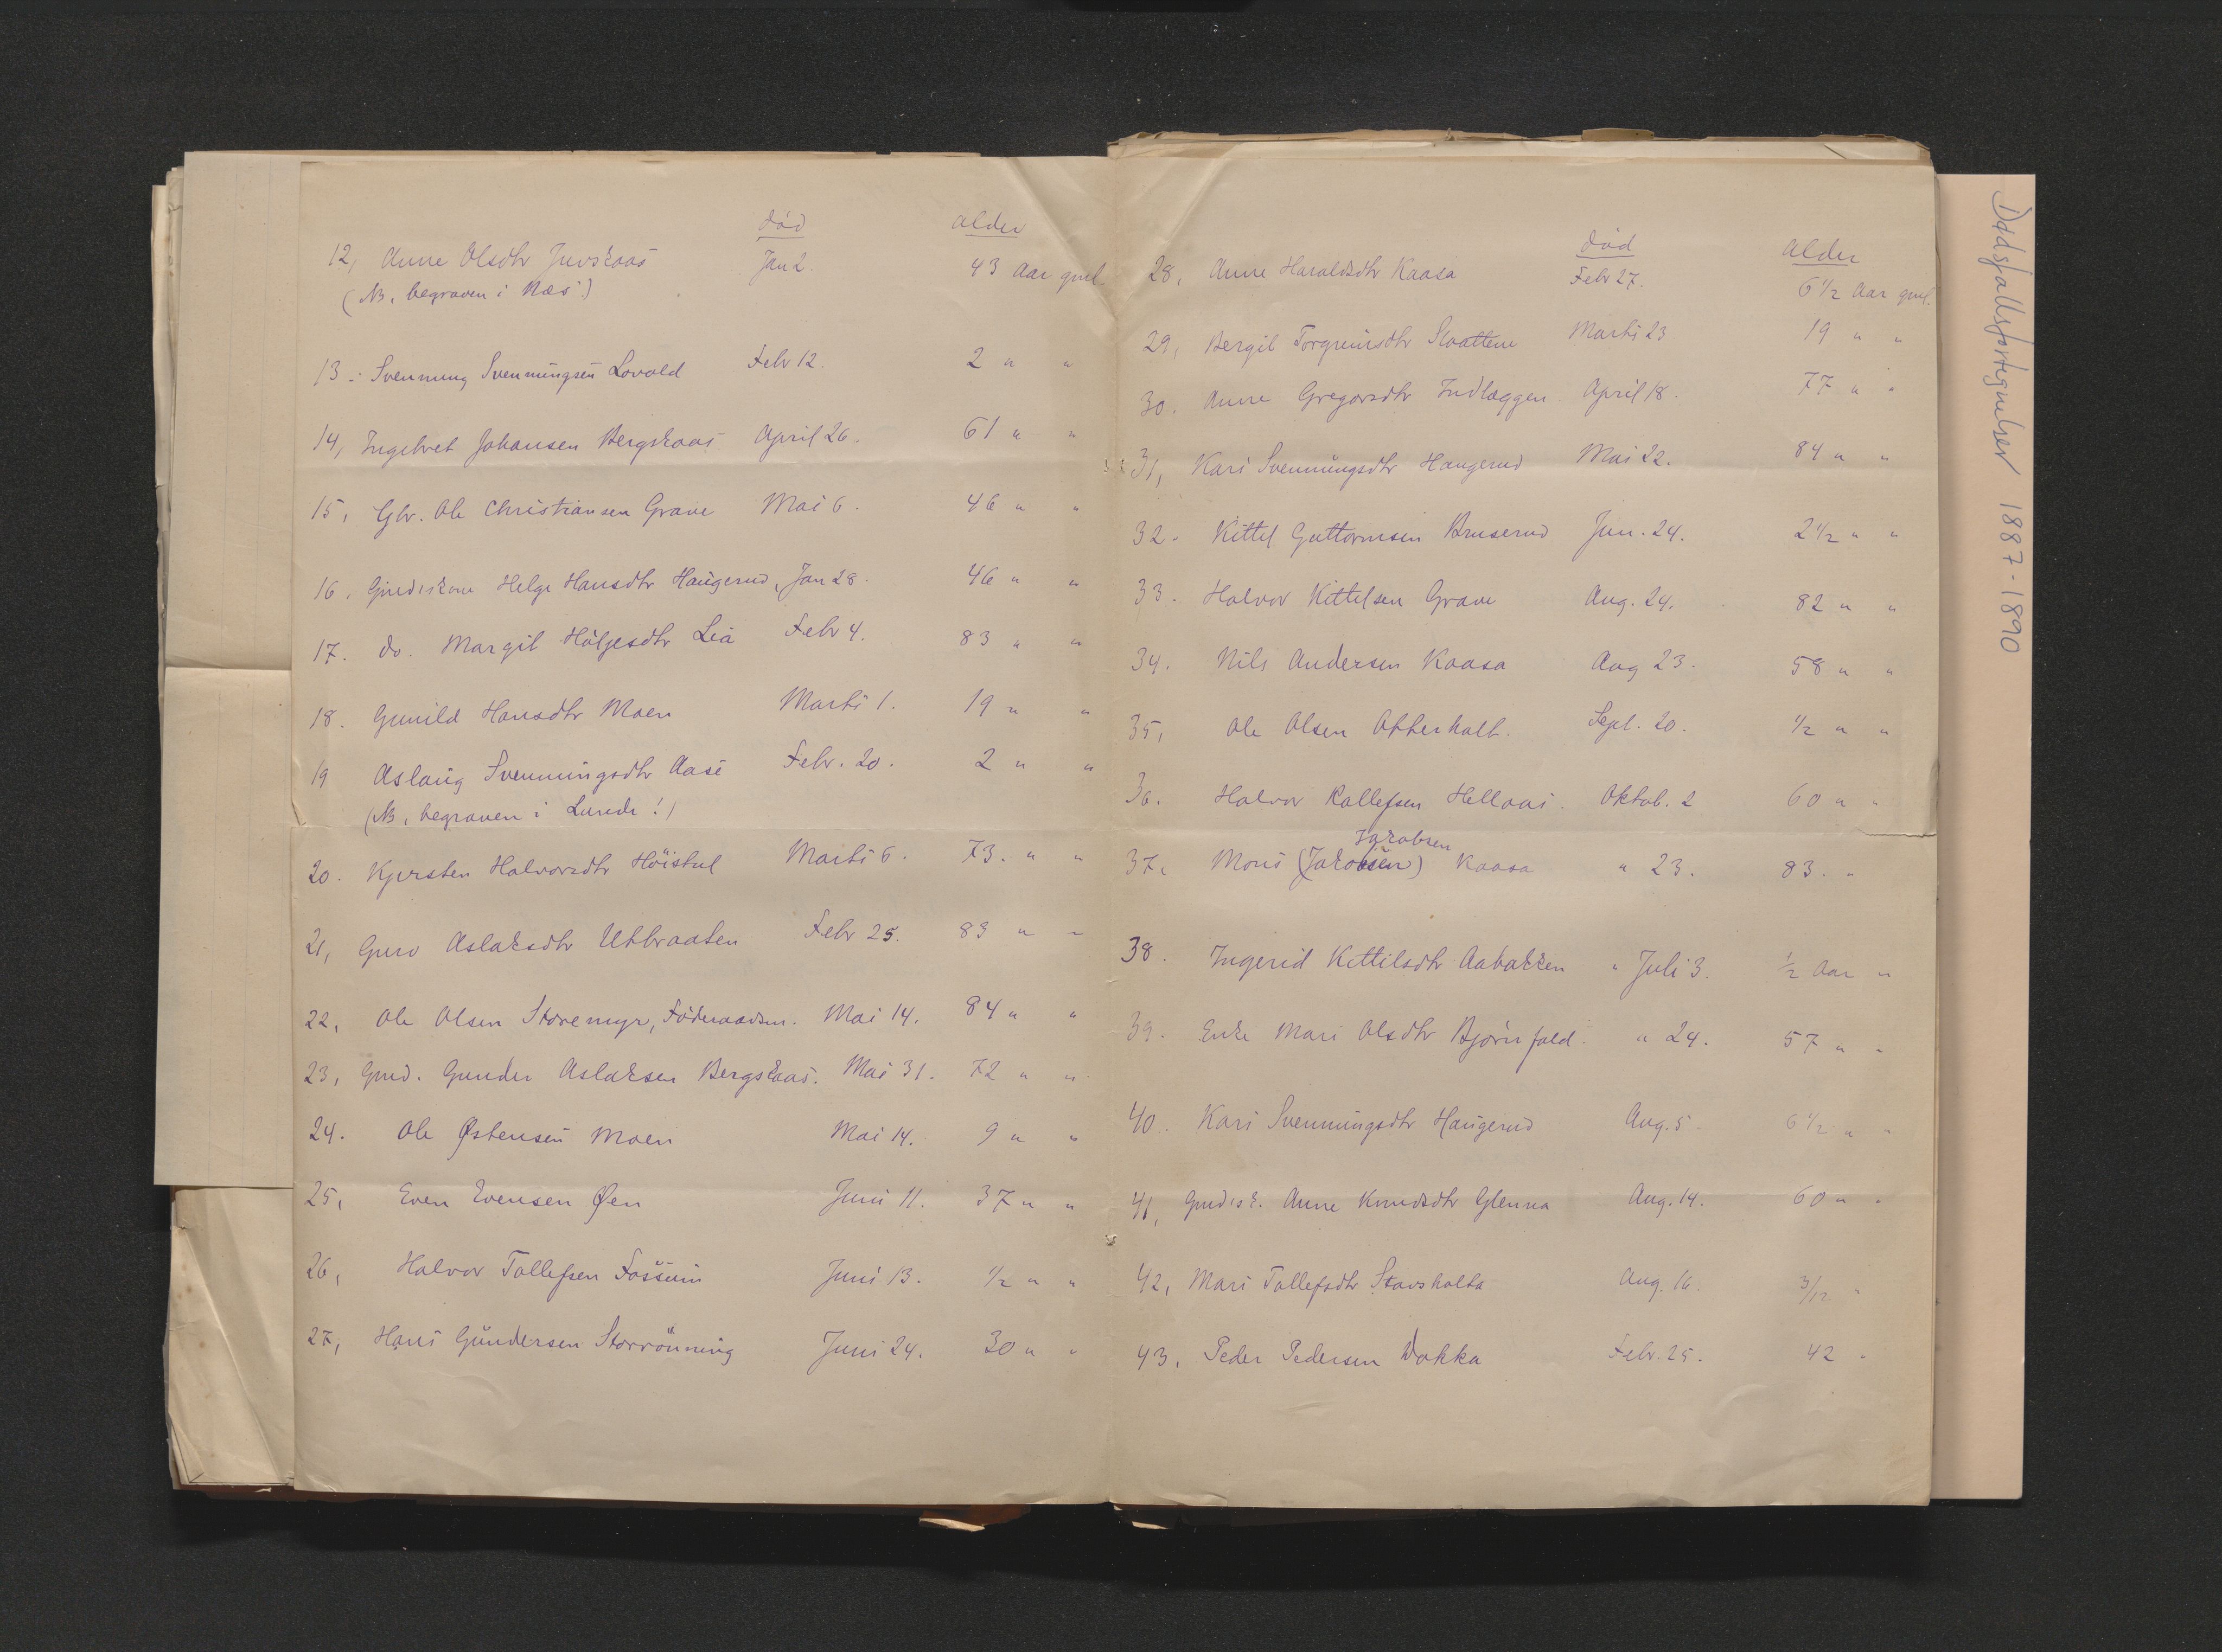 død alder
12, Anne Olsdtr Juvskaas Jan 2. 43 Aar gml.
(NB, begraven i Næs!)
13. Svennung Svenningsen Lovald Febr 12. 2 " "
14, Ingebret Johansen Bergskaas April 26. 61 " "
15, Gbr. Ole Christiansen Grave Mai 6. 46 " "
16, Grudiskone Helge Hansdtr Haugerud, Jan 28. 46 " "
17. do. Margit Höljesdtr Lia Febr 4. 83 " "
18. Gunild Hansdtr Moen Marts 1. 19 " "
19 Aslaug Svenningsdtr Aase Febr. 20. 2 " "
(NB, begraven i Lunde!)
20. Kjersten Halvorsdtr Höistul Marts 6. 73. " "
21, Guro Aslaksdtr Utbraaten Febr 25. 83 " "
22, Ole Olsen Storemyr, Föderaadsm. Mai 14. 84 " "
23, Grud. Gunder Aslaksen Bergskaas. Mai 31. 72 " "
24. Ole Østensen Moen Mai 14. 9 " "
25, Even Evensen Øen Juni 11. 37 " "
26, Halvor Tollefsen Fossum Juni 13. 1/2 " "
27, Hans Gundersen Storrönning Juni 24. 30 " "
død alder
28, Anne Haraldsdtr Kaasa Febr 27. 6 1/2 Aar gml.
29, Bergit Torgrimsdtr Slaattene Marts 23 19 " "
30. Anne Gregarsdtr Indlæggen April 18. 77 " "
31, Kari Svenningsdtr Haugerud Mai 22. 84 " "
32. Kittel Guttormsen Bruserud Jun. 24. 2 1/2 " "
33. Halvor Kittelsen Grave Aug. 24. 82 " "
34. Nils Andersen Kaasa Aug 23. 58 " "
35, Ole Olsen Otterholt. Sept. 20. 1/2 " "
36. Halvor Rollefsen Hellaas. Oktob. 2 60 " "
Jakobsen
37. Mons (Jakobsen) Kaasa " 23. 83. "
38. Ingerid Kittilsdtr Aabakken " Juli 3. 1/2 Aar "
39. Enke Mari Olsdtr Bjørnfald. " 24. 57 " "
40. Kari Svenningsdtr Haugerud Aug. 5. 6 1/2 " "
41, Grudisk. Anne Knudsdtr Glenna Aug. 14. 60 " "
42, Mari Tollefsdtr Stavsholta Aug. 16. 3/12 "
43, Peder Pedersen Dokka Febr. 25. 42 "
Dødsfallsfortegnelser 1887-1890